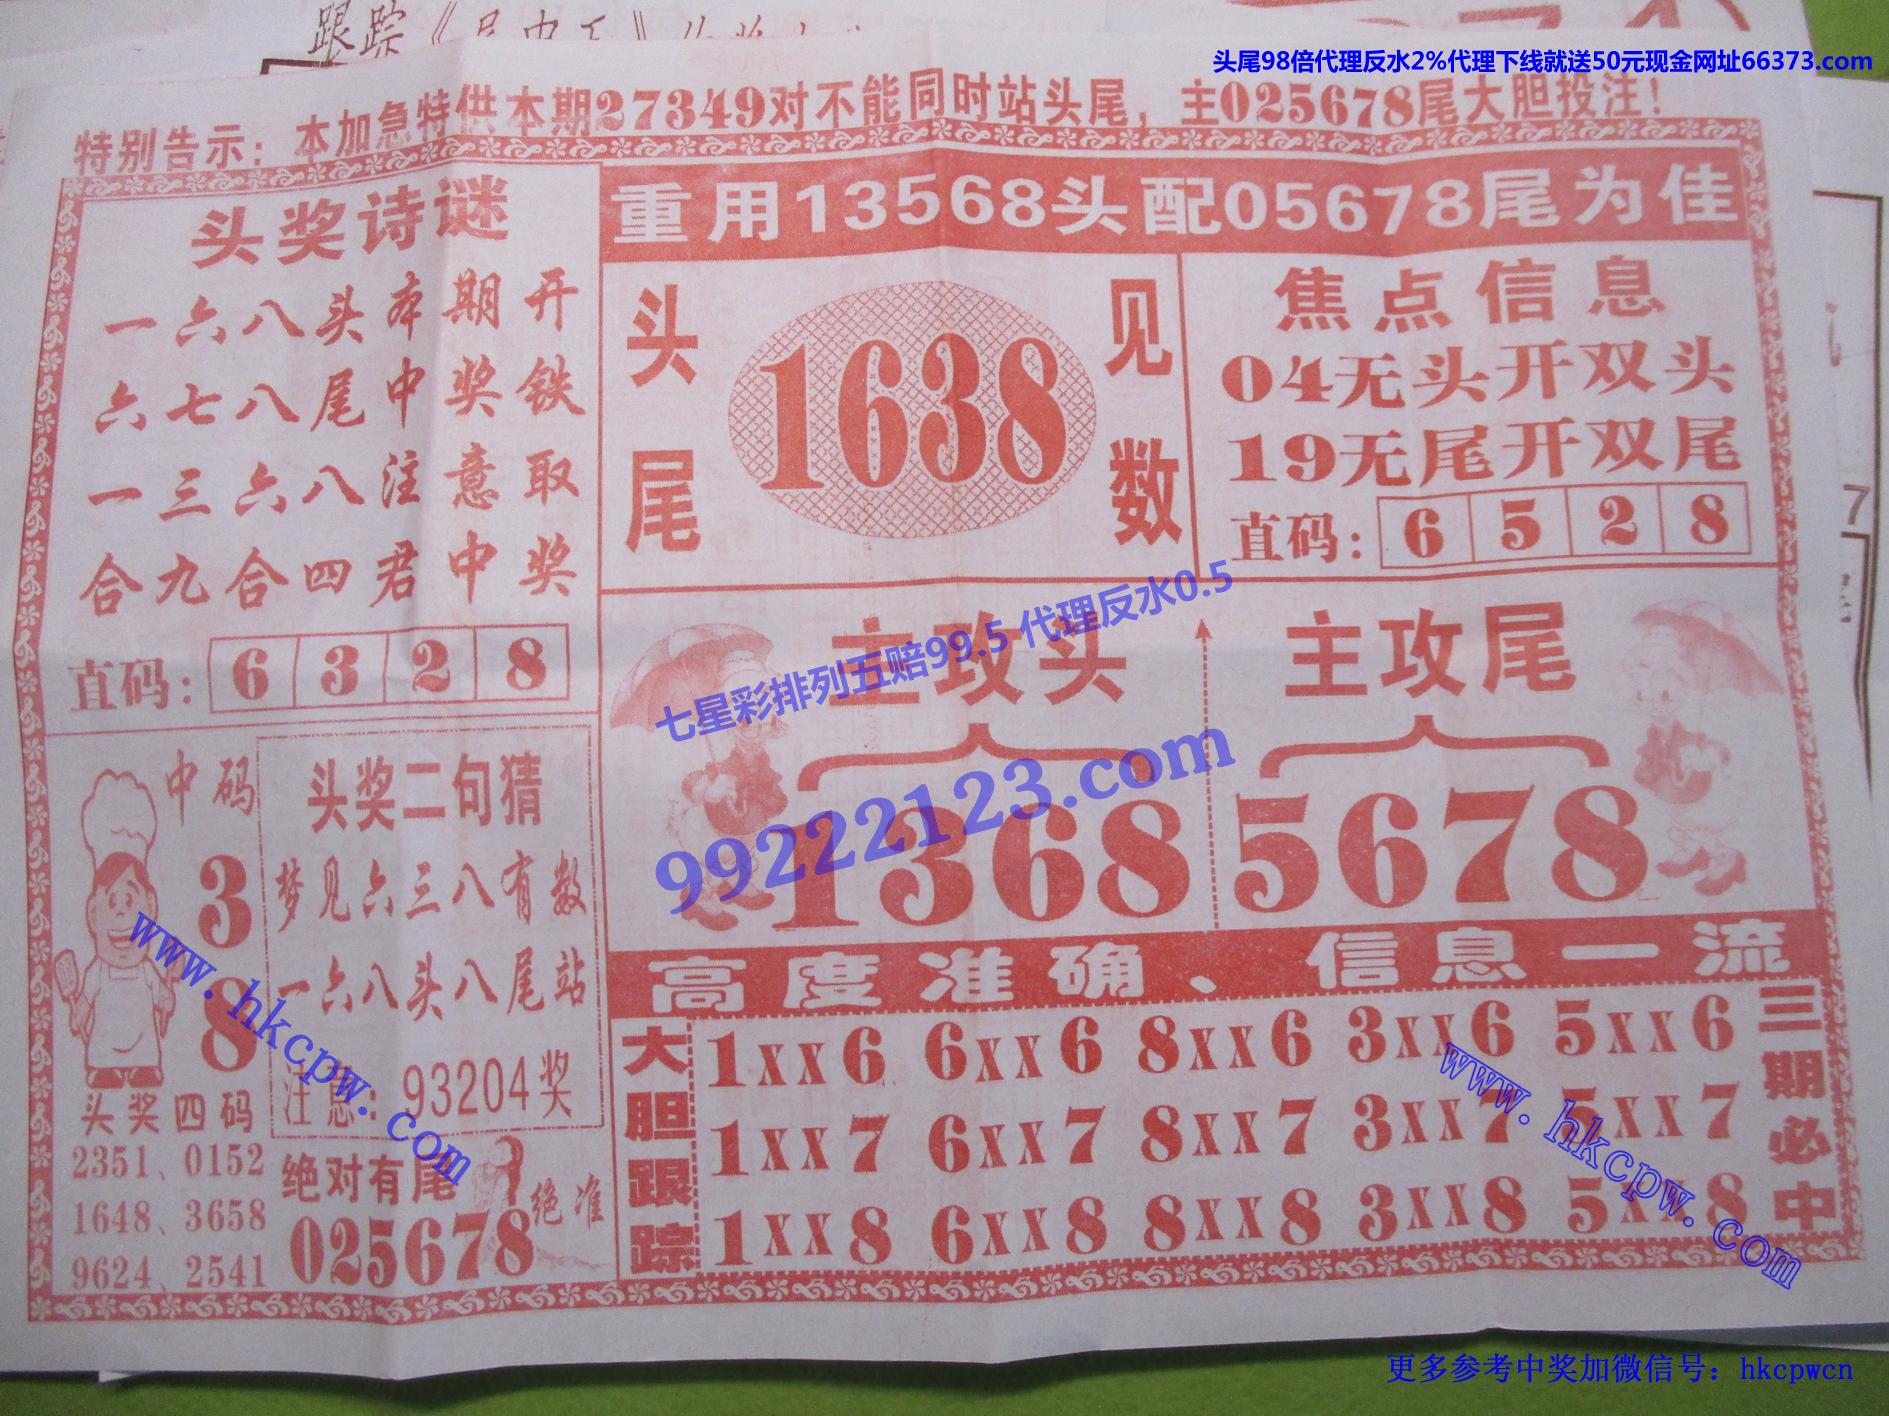 跟踪《
头尾98倍代理反水2%代理下线就送50元现金网址66373.com
特别告示：本加急特供本期27349对不能同时站头尾，主025678尾大胆投注！
头奖诗谜
一六八头本期开
六七八尾中奖铁
一三六八注意取
合九合四君中奖
直码：6 3 2 8
重用13568头配05678尾为佳
头尾
1638
见数
焦点信息
04无头开双头
19无尾开双尾
直码：6 5 2 8
七星彩排列五赔99.5 代理反水0.5
99222123.com
主攻头
1368
主攻尾
5678
中码
3
8
头奖二句猜
梦见六三八有数
一六八头八尾站
注意：93204奖
头奖四码
2351、0152
1648、3658
9624、2541
绝对有尾
025678
绝准
高度准确、信息一流
大胆跟踪
1XX6 6XX6 8XX6 3XX6 5XX6
1XX7 6XX7 8XX7 3XX7 5XX7
1XX8 6XX8 8XX8 3XX8 5XX8
三期必中
www.hkcpw.com
www.hkcpw.com
7
更多参考中奖加微信号：hkcpwcn